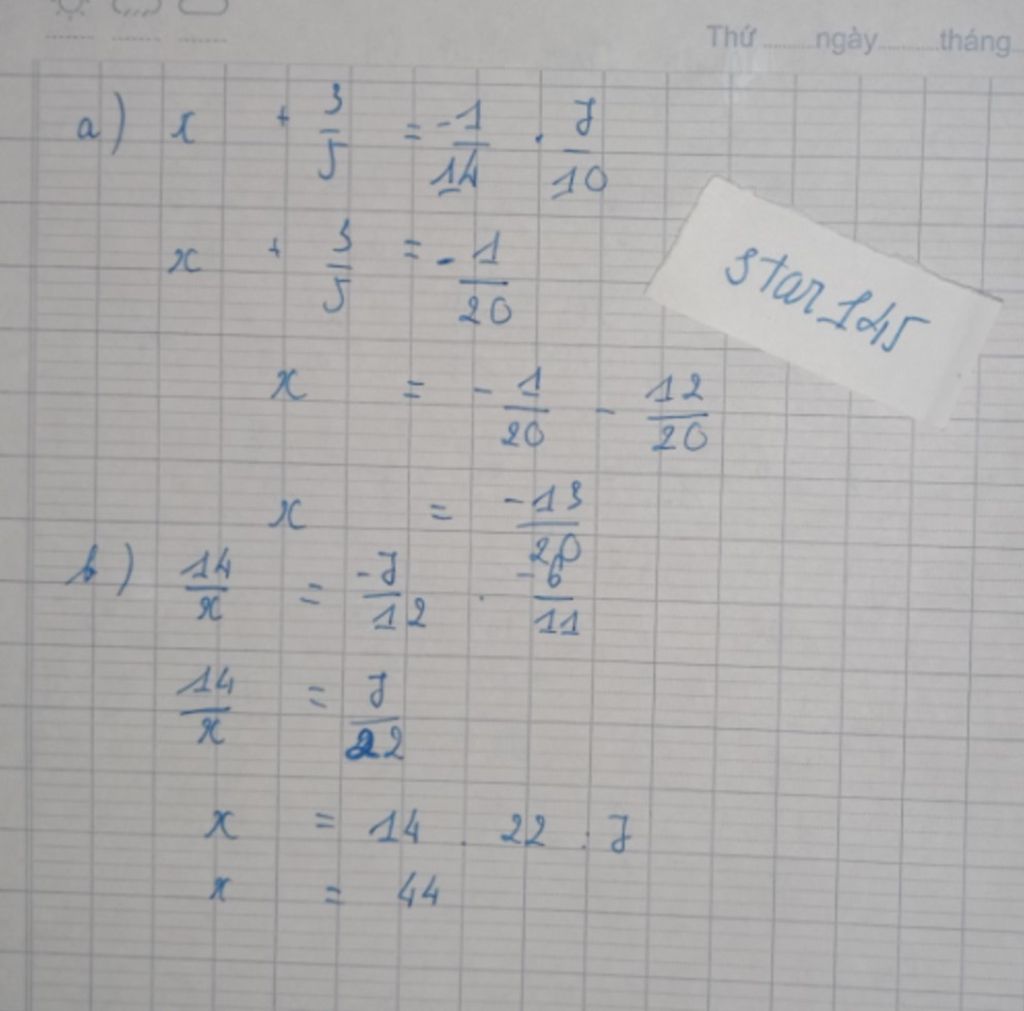 Thứ ........ ngày .......... tháng
a) x + 3/5 = -1/14 . 7/10
x + 3/5 = -1/20
star145
x = - 1/20 - 12/20
x = -13/20
b) 14/x = -7/12 . -6/11
14/x = 7/22
x = 14 . 22 : 7
x = 44